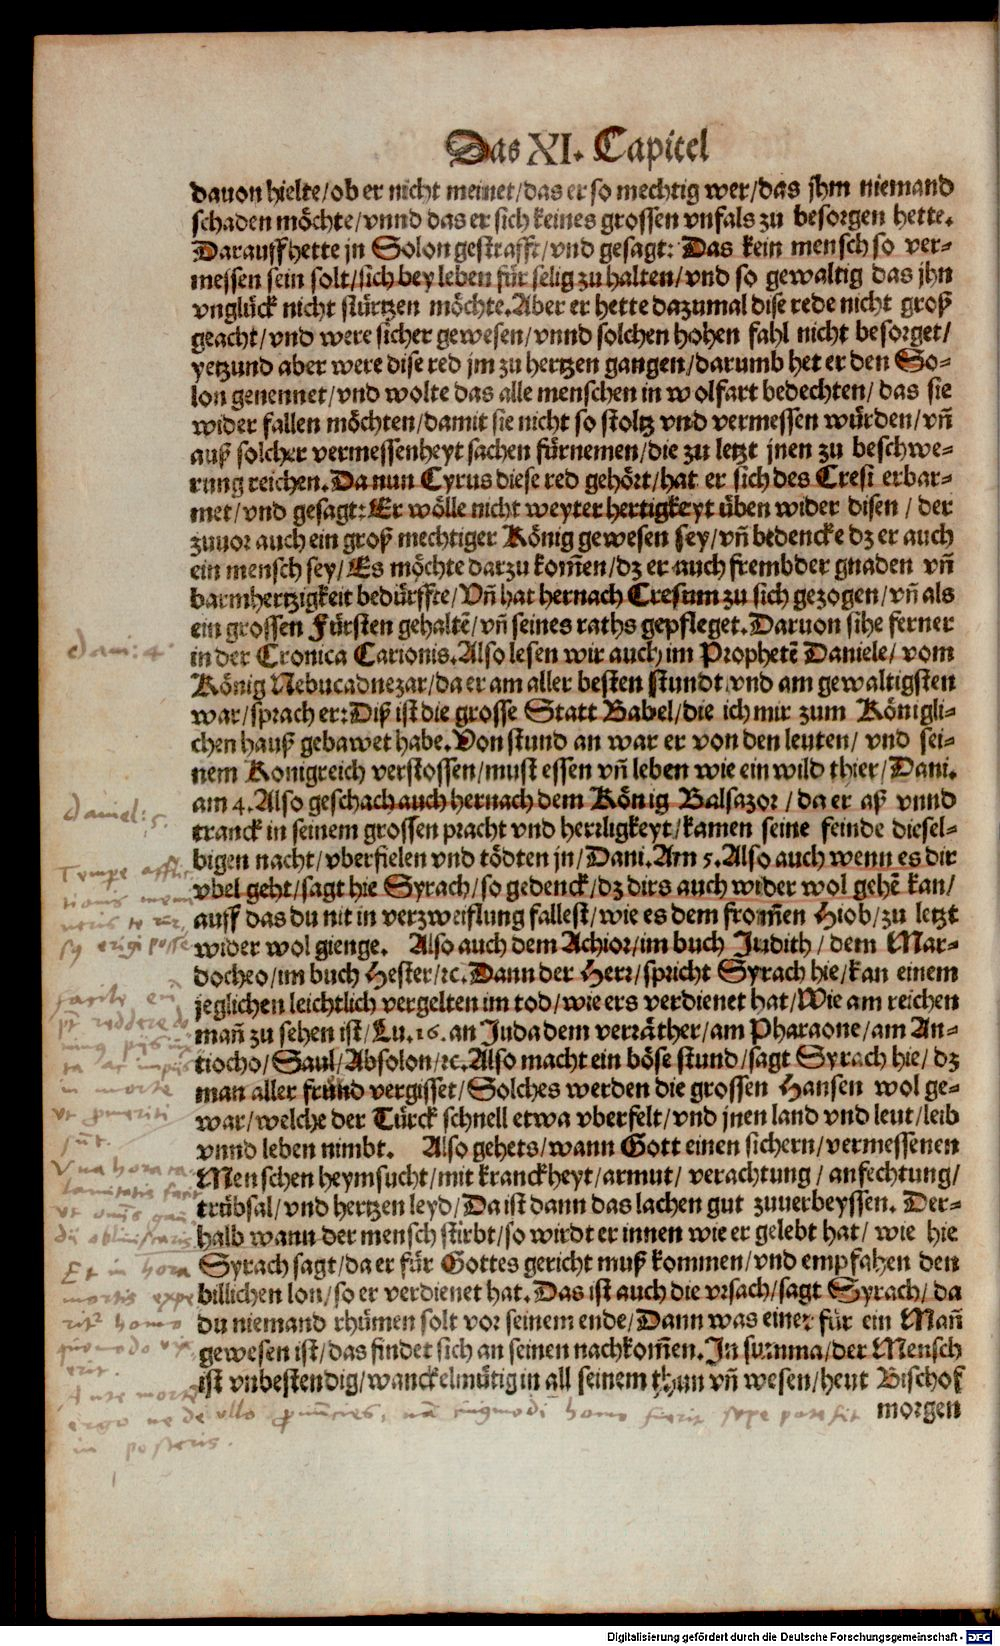 Das XI. Capitel
dauon hielte/ob er nicht meinet/das er so mechtig wer/das jhm niemand
schaden möchte/vnnd das er sich keines grossen vnfals zu besorgen hette.
Darauff hette jn Solon gestrafft/vnd gesagt: Das kein mensch so ver-
messen sein solt/sich bey leben für selig zu halten/vnd so gewaltig das jhn
vnglück nicht stürtzen möchte. Aber er hette dazumal dise rede nicht groß
geacht/vnd were sicher gewesen/vnnd solchen hohen fahl nicht besorget/
yetzund aber were dise red jm zu hertzen gangen/darumb het er den So-
lon genennet/vnd wolte das alle menschen in wolfart bedechten/das sie
wider fallen möchten/damit sie nicht so stoltz vnd vermessen würden/vñ
auß solcher vermessenheyt sachen fürnemen/die zu letzt jnen zu beschwe-
rung reichen. Da nun Cyrus diese red gehört/hat er sich des Cresi erbar-
met/vnd gesagt: Er wölle nicht weyter hertigkeyt üben wider disen/der
zuuor auch ein groß mechtiger König gewesen sey/vñ bedencke dz er auch
ein mensch sey/Es möchte darzu kom̃en/dz er auch frembder gnaden vñ
barmhertzigkeit bedürffte/Vñ hat hernach Cresum zu sich gezogen/vñ als
ein grossen Fürsten gehaltẽ/vñ seines raths gepfleget. Daruon sihe ferner
in der Cronica Carionis. Also lesen wir auch im Prophetẽ Daniele/vom
König Nebucadnezar/da er am aller besten stundt vnd am gewaltigsten
war/sprach er: Diß ist die grosse Statt Babel/die ich mir zum Königli-
chen hauß gebawet habe. Von stund an war er von den leuten/vnd sei-
nem Konigreich verstossen/must essen vñ leben wie ein wild thier/Dani.
am 4. Also geschach auch hernach dem König Balsazor/da er aß vnnd
tranck in seinem grossen pracht vnd herrligkeyt/kamen seine feinde diesel-
bigen nacht/vberfielen vnd tödten jn/Dani. Am 5. Also auch wenn es dir
vbel geht/sagt hie Syrach/so gedenck/dz dirs auch wider wol gehẽ kan/
auff das du nit in verzweiflung fallest/wie es dem from̃en Hiob/zu letzt
wider wol gienge. Also auch dem Achior/im buch Judith/dem Mar-
docheo/im buch Hester/ꝛc. Dann der Herr/spricht Syrach hie/kan einem
jeglichen leichtlich vergelten im tod/wie ers verdienet hat/Wie am reichen
mañ zu sehen ist/Lu. 16. an Juda dem verräther/am Pharaone/am An-
tiocho/Saul/Absolon/ꝛc. Also macht ein böse stund/sagt Syrach hie/dz
man aller fründ vergisset/Solches werden die grossen Hansen wol ge-
war/welche der Türck schnell etwa vberfelt/vnd jnen land vnd leut/leib
vnnd leben nimbt. Also gehets/wann Gott einen sichern/vermessenen
Menschen heymsucht/mit kranckheyt/armut/verachtung/anfechtung/
trübsal/vnd hertzen leyd/Da ist dann das lachen gut zuuerbeyssen. Der-
halb wann der mensch stirbt/so wirdt er innen wie er gelebt hat/wie hie
Syrach sagt/da er für Gottes gericht muß kommen/vnd empfahen den
billichen lon/so er verdienet hat. Das ist auch die vrsach/sagt Syrach/da
du niemand rhümen solt vor seinem ende/Dann was einer für ein Mañ
gewesen ist/das findet sich an seinen nachkom̃en. In summa/der Mensch
ist vnbestendig/wanckelmütig in all seinem thun vñ wesen/heut Bischof
morgen
dani: 4
daniel: 5.
Tempe afflic-
tionis memi
neris te rur
sy erigi posse
facile eñ
pt reddere do
minus pijs
ta ac impijs
in morte
vt
sũt.
Vna hora ca-
lamitatis facit
vt om̃s gau
dij obliuiscaris
Et in hora
mortis expe
rit homo
quomodo vix
erit.
Ante mortẽ
ergo ne de vllo homo fuerit sepe patefit
in posteris.
Digitalisierung gefördert durch die Deutsche Forschungsgemeinschaft - DFG